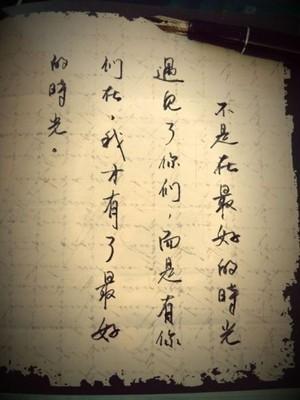 不是在最好的時光
遇见了你们，而是有你
们在，我才有了最好
的時光。